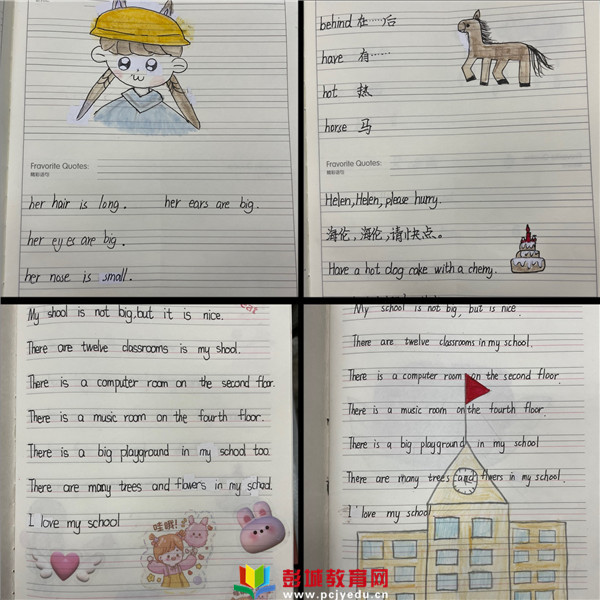 Fravorite Quotes:
精彩语句
her hair is long. her ears are big.
her eyes are big.
her nose is small.
behind 在……后
have 有……
hot 热
horse 马
Fravorite Quotes:
精彩语句
Helen, Helen, please hurry.
海伦,海伦,请快点。
Have a hot dog cake with a cherry.
My shool is not big, but it is nice.
There are twelve classrooms is my shool.
There is a computer room on the second floor.
There is a music room on the fourth floor.
There is a big playground in my school too.
There are many trees and flowers in my school.
I love my school
哇哦!
My school is not big, but is nice.
There are twelve classrooms in my school.
There is a computer room on the second floor.
There is a music room on the fourth floor.
There is a big playground in my school
There are many trees and flwers in my school.
I love my school
彭城教育网
www.pcjyedu.cn